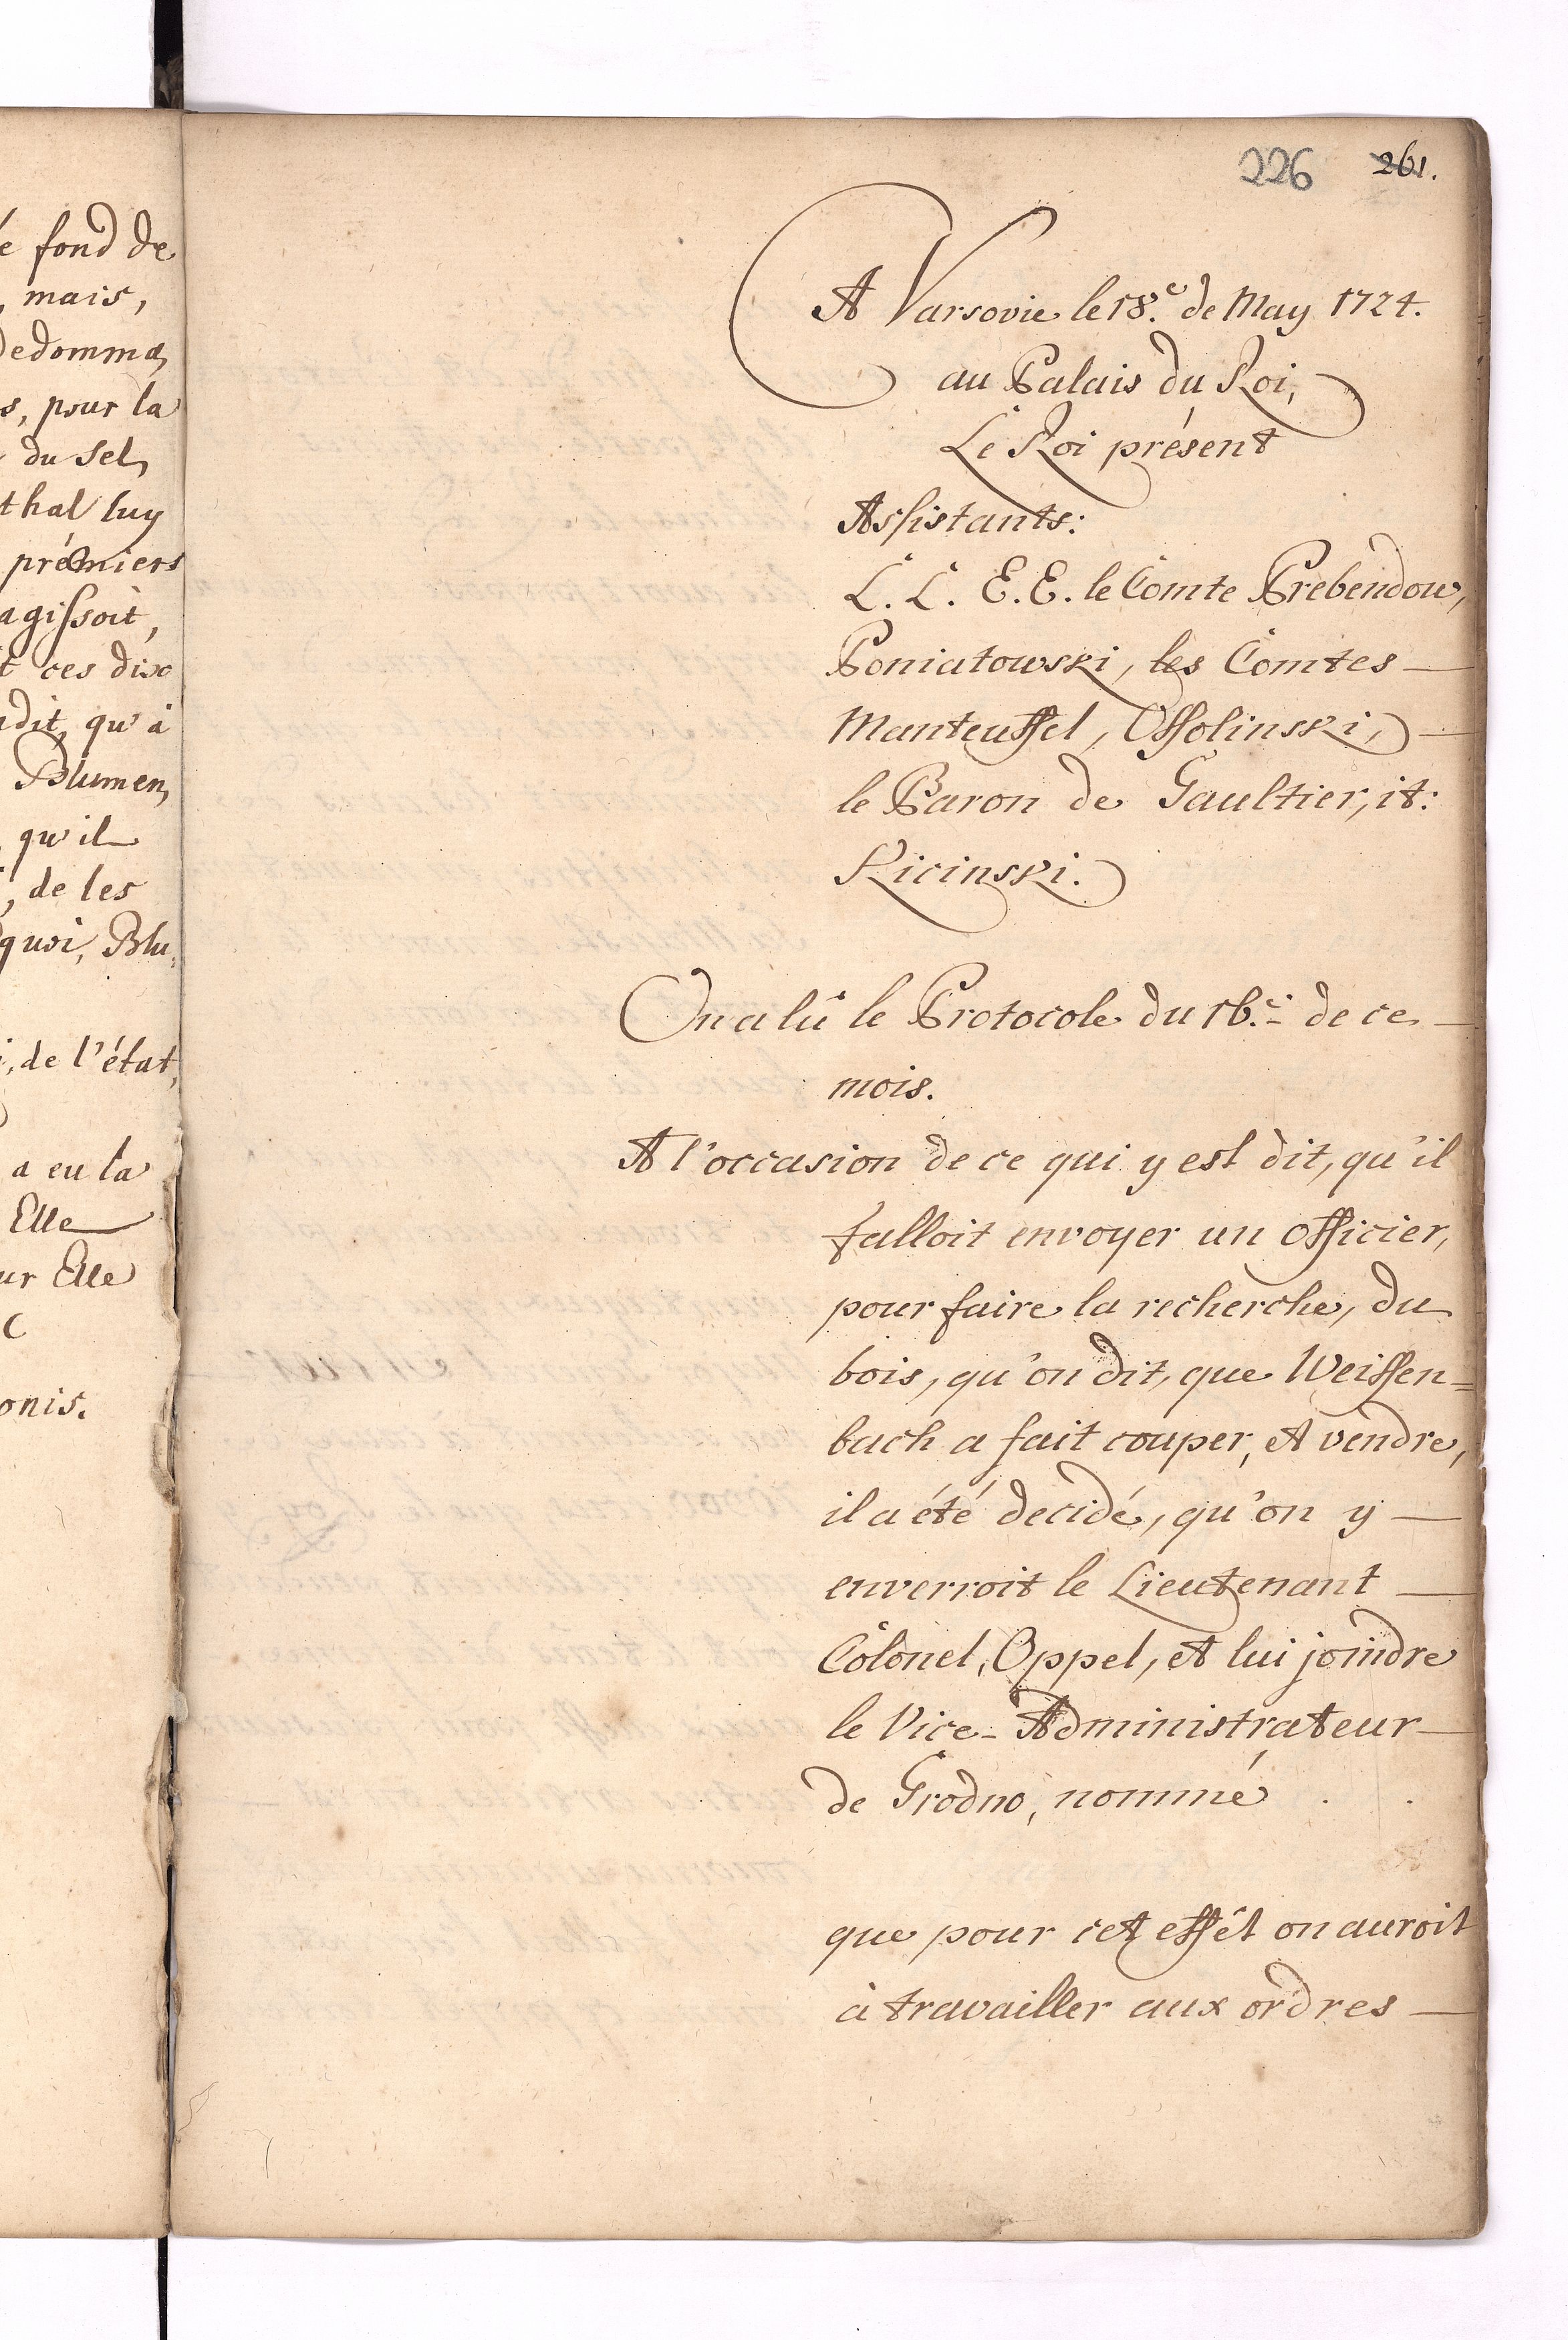 é fond de
, mais,
dedomma,
s, pour la
du sel,
thal luy
prémiers
agissoit,
t ces dix
dit, qu'à
Blumen,
qu'il
, de les
quoi, Blu,
, de l'état,
a eu la
Elle
ur Elle
C
onis.
226 261.
A Varsovie le 18.e de May 1724.
au Palais du Roi,
Le Roi présent
Assistants:
L. L. E. E. le Comte Prebendow,
Poniatowski, les Comtes —
Manteuffel, Ossolinski, —
le Baron de Gaultier, it:
Kicinski.
On a lû le Protocole du 16.e de ce —
mois.
A l'occasion de ce qui y est dit, qu'il
falloit envoyer un officier,
pour faire la recherche, du
bois, qu'on dit, que Weissen=
bach a fait couper, et vendre,
il a été decidé, qu'on y —
enverroit le Lieutenant —
Colonel, Oppel, et lui joindre
le Vice-Administrateur —
de Grodno, nommé . .
que pour cet effêt on auroit
à travailler aux ordres —